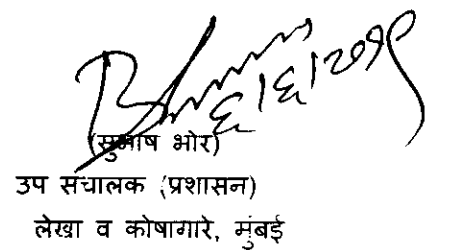 ६|६|२०१९
(सुभाष भोर)
उप संचालक (प्रशासन)
लेखा व कोषागारे, मुंबई